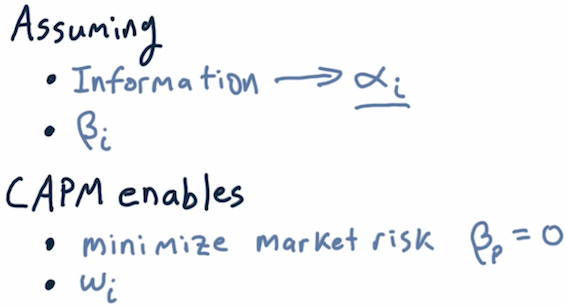 Assuming
• Information → αi
• βi
CAPM enables
• minimize market risk βp = 0
• wi